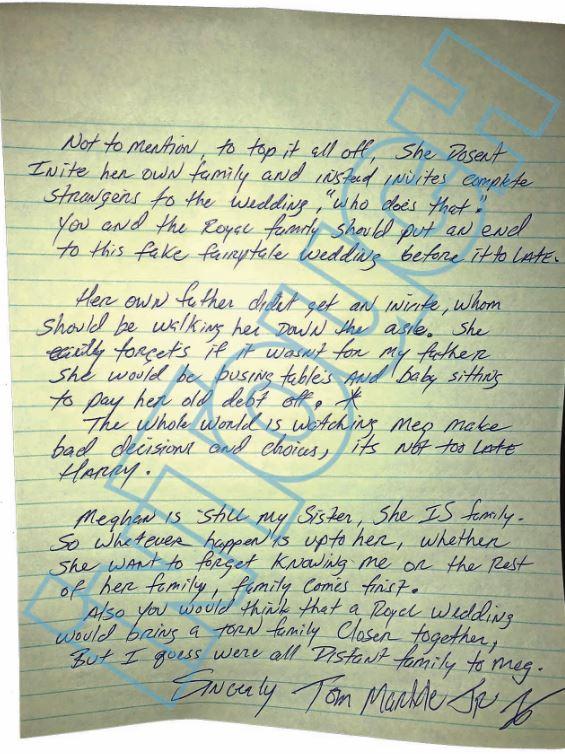 Not to mention, to top it all off, She Dosent
Inite her own family and insted invites complete
Strangers to the wedding, "who does that".
You and the Royal family should put an end
to this fake fairytale wedding before it to LATE.
Her own father didnt get an invite, whom
should be walking her Down the asle. She
forgets if it wasnt for my father
She would be busing tables AND baby sitting
to pay her old debt off. *
The whole world is watching Meg make
bad decisions and choices, its Not too LATE
HARRY.
Meghan is still my Sister, She IS family.
So whatever happen is upto her, whether
She WANT to forget Knowing me or the Rest
of her family, family comes first.
Also you would think that a Royal wedding
would bring a TORN family Closer together,
But I guess were all Distant family to Meg.
Sincerly Tom Markle Jr
inTouch